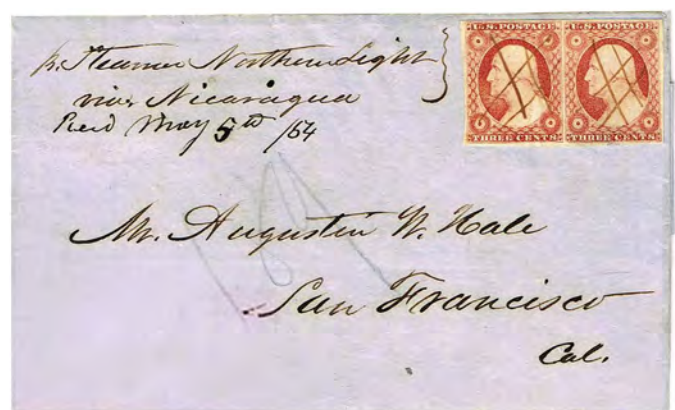 p. Steamer Northern Light
via. Nicaragua
Recd May 5th /54
U.S. POSTAGE
THREE CENTS
U.S. POSTAGE
THREE CENTS
Mr. Augustin W. Hale
San Francisco
Cal.